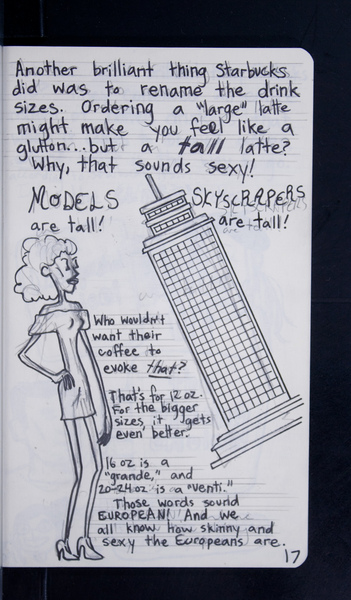 Another brilliant thing Starbucks
did was to rename the drink
sizes. Ordering a "large" latte
might make you feel like a
glutton...but a tall latte?
Why, that sounds sexy!
MODELS
are tall!
SKYSCRAPERS
are tall!
Who wouldn't
want their
coffee to
evoke that?
That's for 12 oz.
For the bigger
sizes, it gets
even better.
16 oz is a
"grande," and
20-24 oz is a "venti."
Those words sound
EUROPEAN! And we
all know how skinny and
sexy the Europeans are.
17